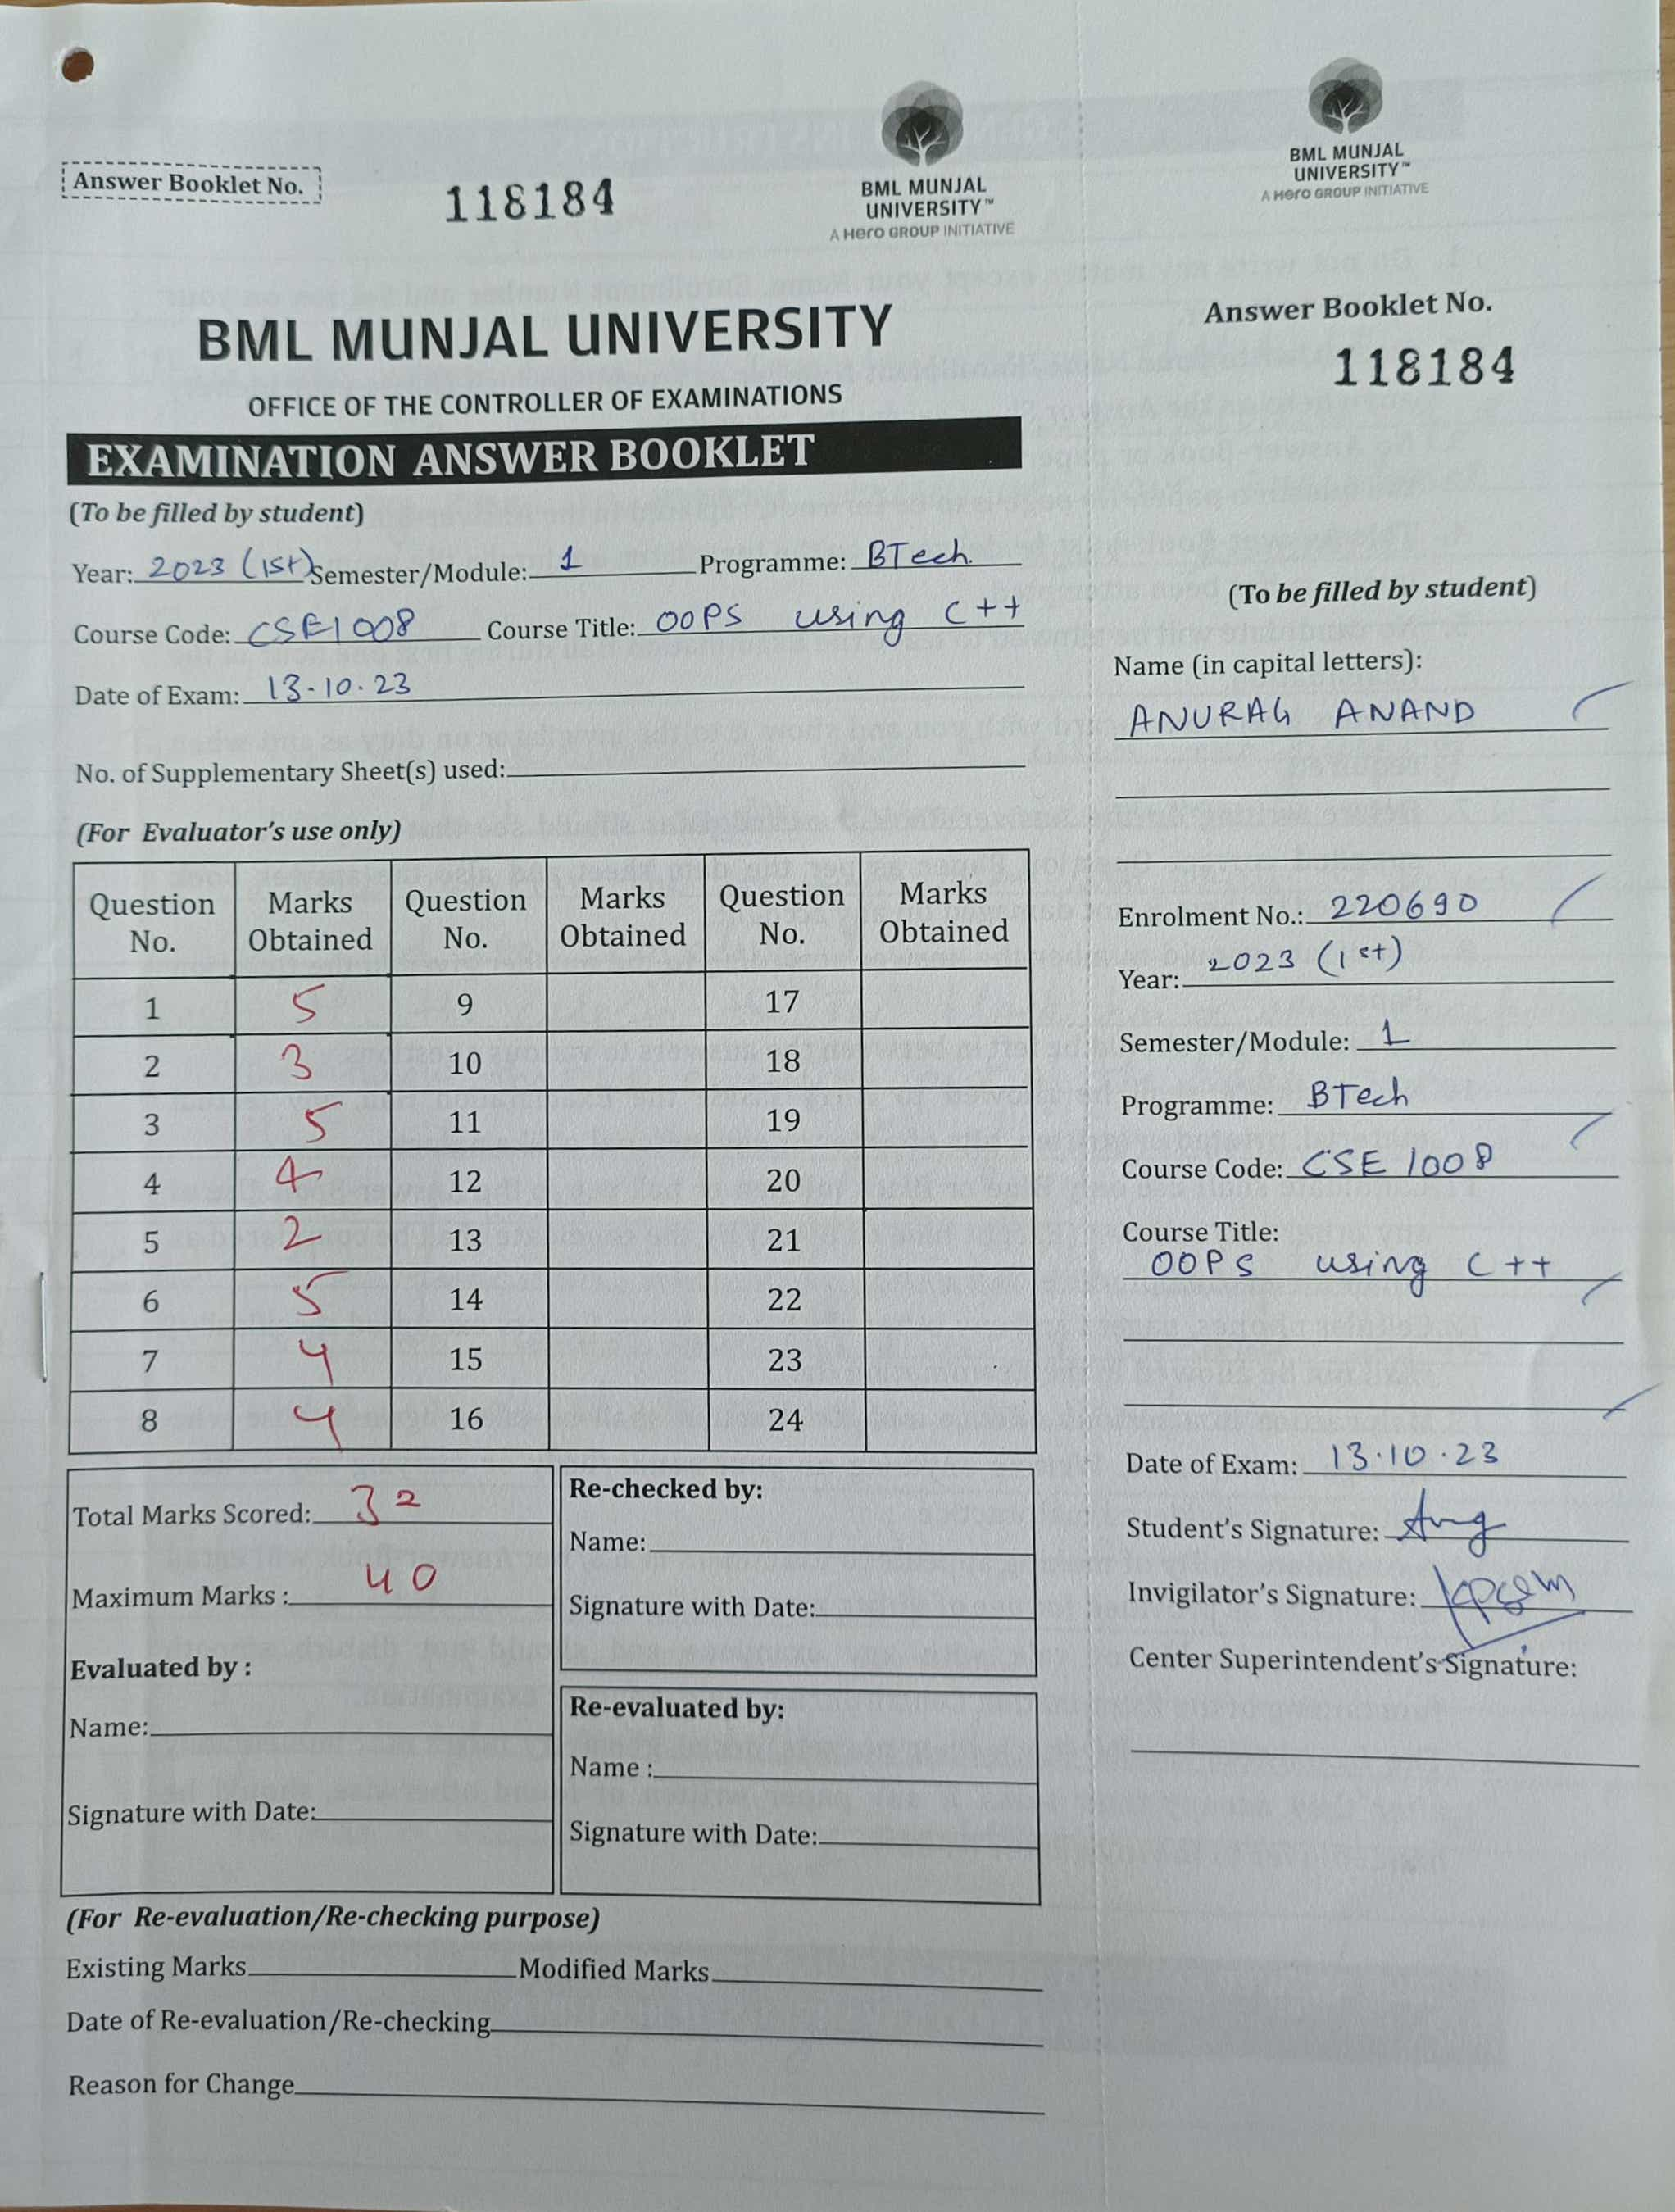 Answer Booklet No.
118184
BML MUNJAL
UNIVERSITY™
A Hero GROUP INITIATIVE
BML MUNJAL UNIVERSITY
OFFICE OF THE CONTROLLER OF EXAMINATIONS
EXAMINATION ANSWER BOOKLET
(To be filled by student)
Year: 2023 (1st) Semester/Module: 1 Programme: BTech.
Course Code: CSE1008 Course Title: OOPS using C++
Date of Exam: 13-10.23
No. of Supplementary Sheet(s) used:
(For Evaluator's use only)
Question No. Marks Obtained Question No. Marks Obtained Question No. Marks Obtained
1 5 9 17
2 3 10 18
3 5 11 19
4 4 12 20
5 2 13 21
6 5 14 22
7 4 15 23
8 4 16 24
Total Marks Scored: 32
Maximum Marks : 40
Evaluated by :
Name:
Signature with Date:
Re-checked by:
Name:
Signature with Date:
Re-evaluated by:
Name :
Signature with Date:
(For Re-evaluation/Re-checking purpose)
Existing Marks Modified Marks
Date of Re-evaluation/Re-checking
Reason for Change
BML MUNJAL
UNIVERSITY™
A Hero GROUP INITIATIVE
Answer Booklet No.
118184
(To be filled by student)
Name (in capital letters):
ANURAG ANAND
Enrolment No.: 220690
Year: 2023 (1st)
Semester/Module: 1
Programme: BTech
Course Code: CSE 1008
Course Title:
OOPS using C++
Date of Exam: 13.10.23
Student's Signature:
Invigilator's Signature:
Center Superintendent's Signature: